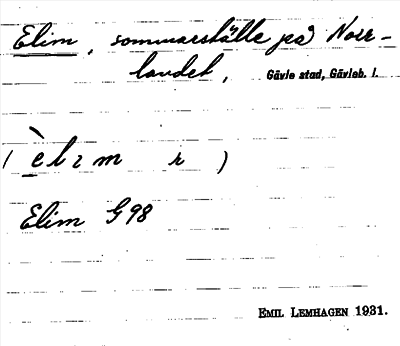 Elim, sommarställe på Norr-
landet, Gävle stad, Gävleb. l.
( è l ɪ m i )
Elim G 98
EMIL LEMHAGEN 1931.